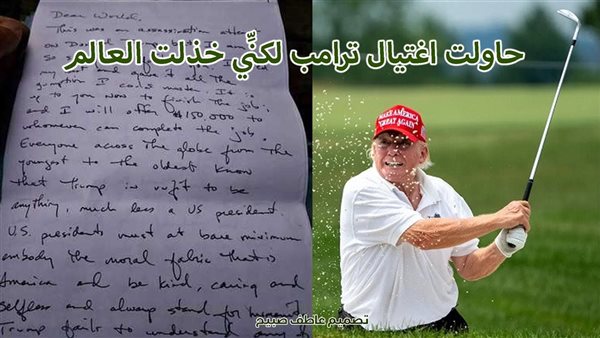 حاولت اغتيال ترامب لكنِّي خذلت العالم
Dear World,
This was an assassination
on Do
I
gumption I could muster. It
up to you now to finish the job;
and I will offer $150,000 to
whomever can complete the job.
Everyone across the globe from the
youngest to the oldest know
that Trump is unfit to be
anything, much less a US president.
U.S. presidents must at bare minimum
embody the moral fabric that is
America and be kind, caring and
selfless and always stand for
Trump fails to understand any
MAKE AMERICA
GREAT AGAIN
تصميم عاطف صبيح